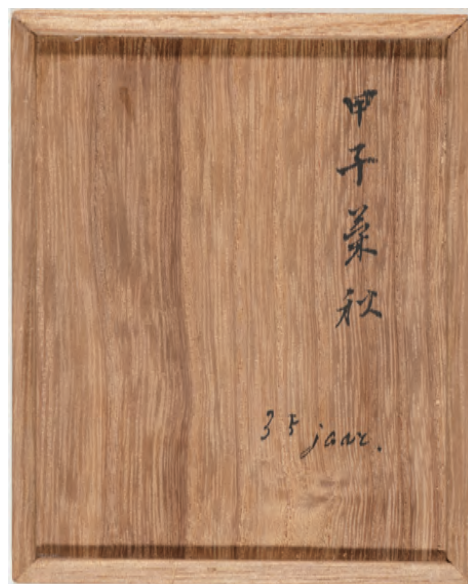 甲子菊秋
35 jaar.